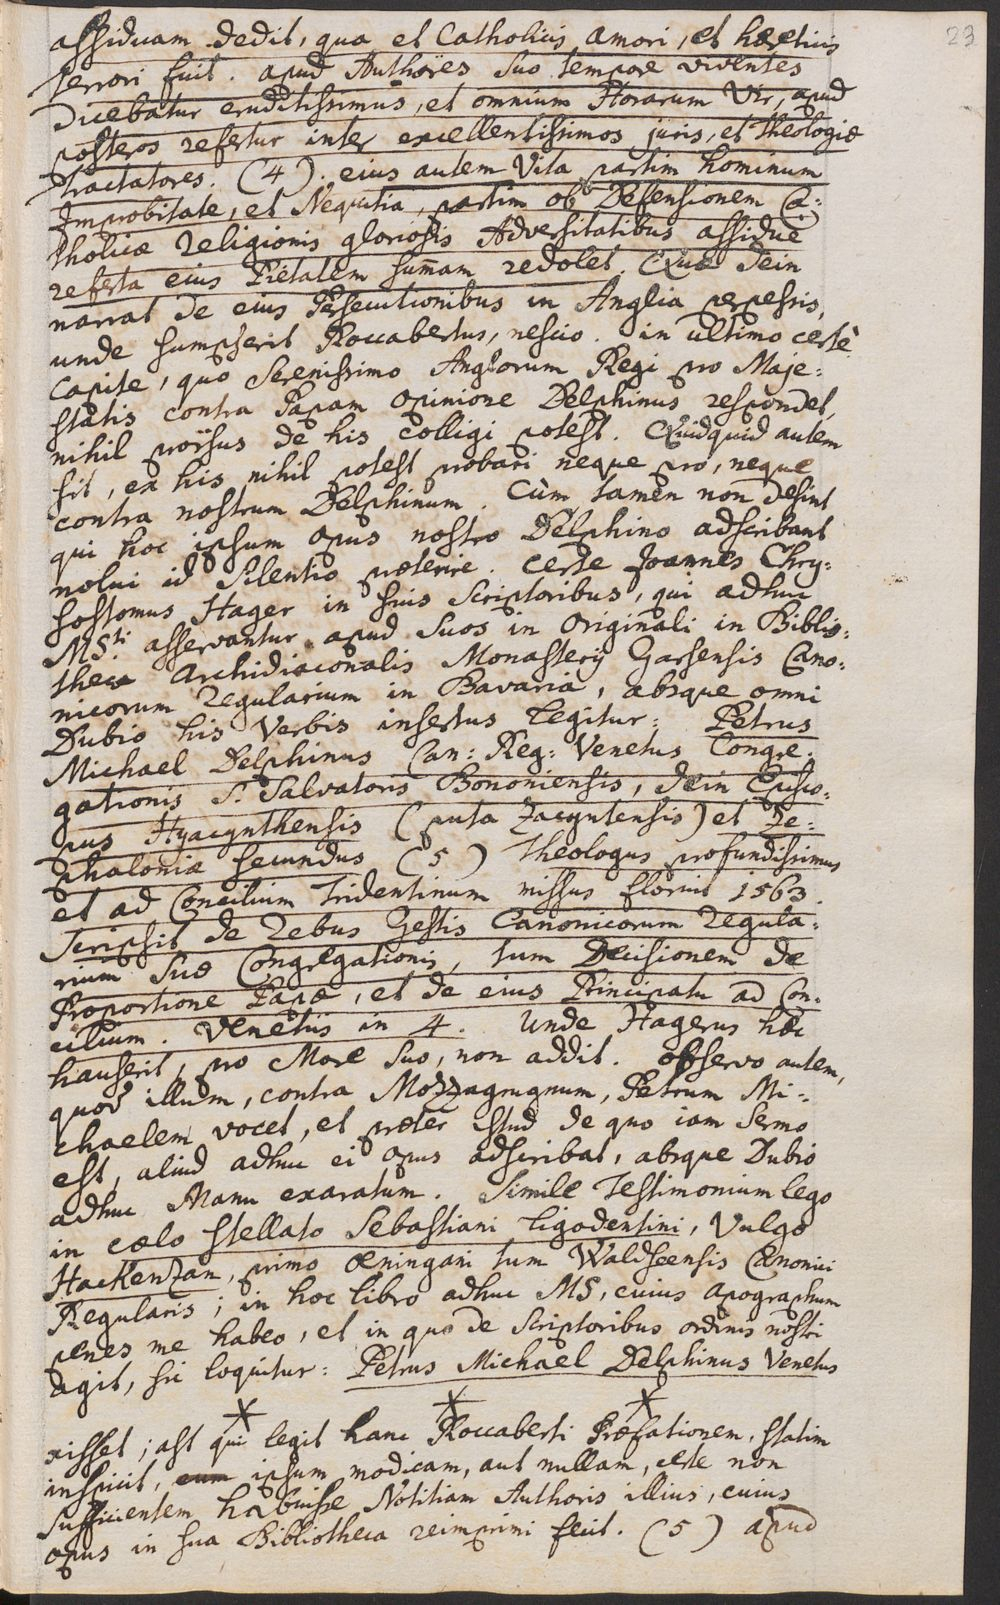 23
assiduam dedit, qua et Catholicis amori, et hæreticis
terrori fuit. apud Authores suo tempore viventes
Dicebatur eruditissimus, et omnium Horarum Vir, apud
posteros refertur inter excellentissimos juris, et theologiæ
tractatores. (4). eius autem Vita partim hominum
Improbitate, et Nequitia, partim ob Defensionem Ca:
tholicæ religionis gloriosis Adversitatibus assidue
referta eius Pietatem sum̄am redolet. Quæ dein
narrat de eius Persecutionibus in Anglia perpessis,
unde sumpserit Roccabertus, nescio. in ultimo certè
capite, quo Serenissimo Anglorum Regi pro Maje:
statis contra Papam opinione Delphinus respondet,
nihil prorsus de his colligi potest. Quidquid autem
sit, ex his nihil potest probari neque pro, neque
contra nostrum Delphinum. Cùm tamen non desint
qui hoc ipsum opus nostro Delphino adscribant
nolui id silentio præterire. Certe Joannes Chry:
sostomus Hager in suis Scriptoribus, qui adhuc
MSti asservantur apud suos in Originali in Biblio:
theca Archidiaconalis Monasterij Garsensis Cano:
nicorum regularium in Bavaria, absque omni
Dubio his Verbis insertus legitur: Petrus
Michael Delphinus Can: Reg: Venetus Congre:
gationis S. Salvatoris Bononiensis, dein Episco:
pus Hyacynthensis (puta Zacyntensis) et Ze:
phaloniæ secundus (5) Theologus profundissimus
et ad Concilium Tridentinum missus floruit 1563.
Scripsit de rebus Gestis Canonicorum regula:
rium suæ Congregationis, tum Decisionem de
Proportione Papæ, et de eius Principatu ad Con:
cilium. Venetiis in 4. Unde Hagerus hæc
hauserit, pro More suo, non addit. observo autem,
quod illum, contra Mozzagrugnum, Petrum Mi:
chaelem vocet, et præter istud de quo iam sermo
est, aliud adhuc ei opus adscribat, absque Dubio
adhuc Manu exaratum. Simile Testimonium lego
in cælo stellato Sebastiani Ligodentini, Vulgo
Hackenzan, primo æningani tum Waldseensis Canonici
Regularis; in hoc libro adhuc MS, cuius apographum
penes me habeo, et in quo de Scriptoribus ordinis nostri
agit, sic loquitur: Petrus Michael Delphinus Venetus
* * *
xisset; ast qui legit hanc Roccaberti Præfationem, statim
inspicit, eum ipsum modicam, aut nullam, certe non
sufficientem habuisse Notitiam Authoris illius, cuius
opus in sua Bibliotheca reimprimi fecit. (5) apud